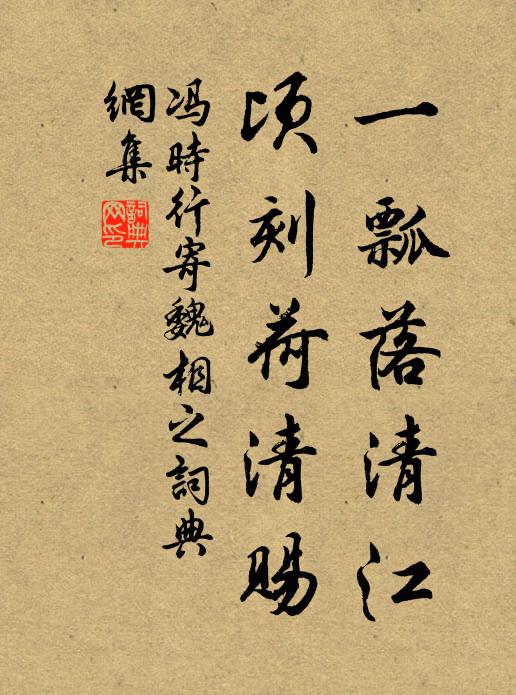 一瓢落清江
頃刻荷清賜
冯時行寄魏相之詞典
網集
詞典
网印